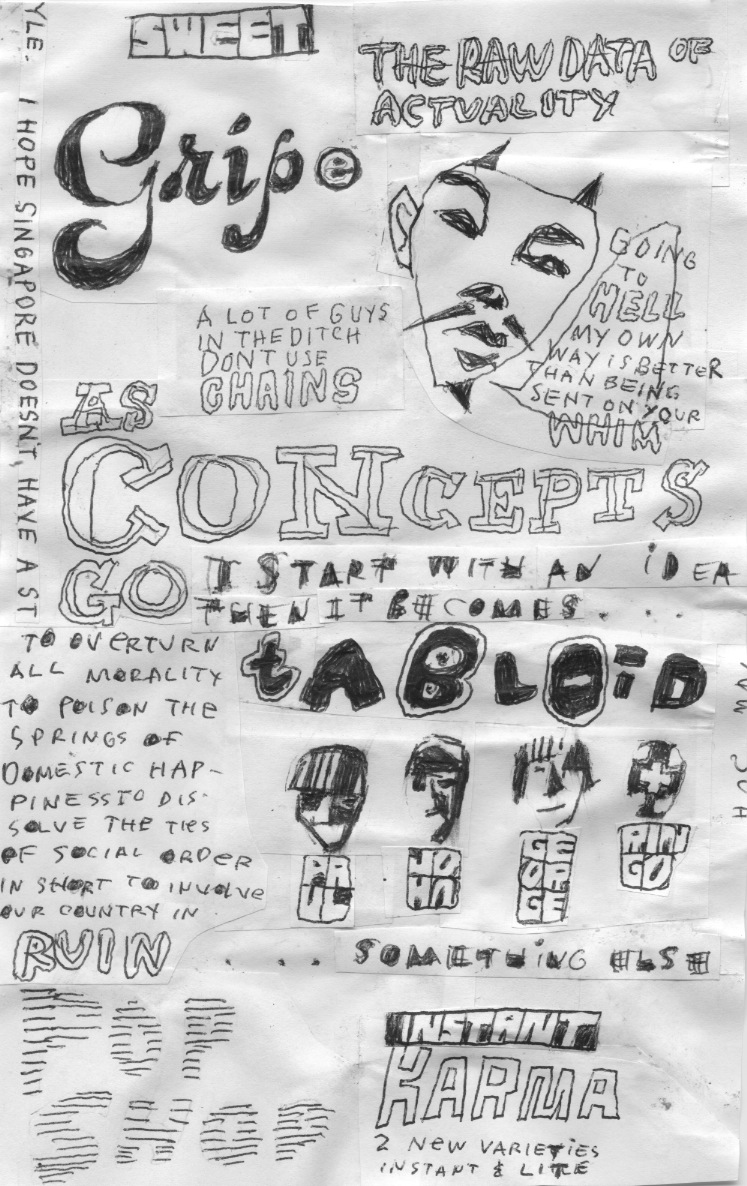 SWEET
Gripe
THE RAW DATA OF
ACTUALITY
YLE. I HOPE SINGAPORE DOESN'T, HAVE A ST
GOING
TO
HELL
MY OWN
WAY IS BETTER
THAN BEING
SENT ON YOUR
WHIM
A LOT OF GUYS
IN THE DITCH
DONT USE
CHAINS
AS
CONCEPTS
GO
IT START WITH AN iDEA
THEN IT BECOMES....
tABLOiD
TO OVERTURN
ALL MORALITY
TO POISON THE
SPRINGS OF
DOMESTIC HAP-
PINESS TO DIS-
SOLVE THE TIES
OF SOCIAL ORDER
IN SHORT TO INVOLVE
OUR COUNTRY IN
RUIN
PA
UL
JO
HN
GE
OR
GE
RIN
GO
.... SOMETHiNG ELSE
POP
SHOP
INSTANT
KARMA
2 NEW VARIETIES
INSTANT & LITE